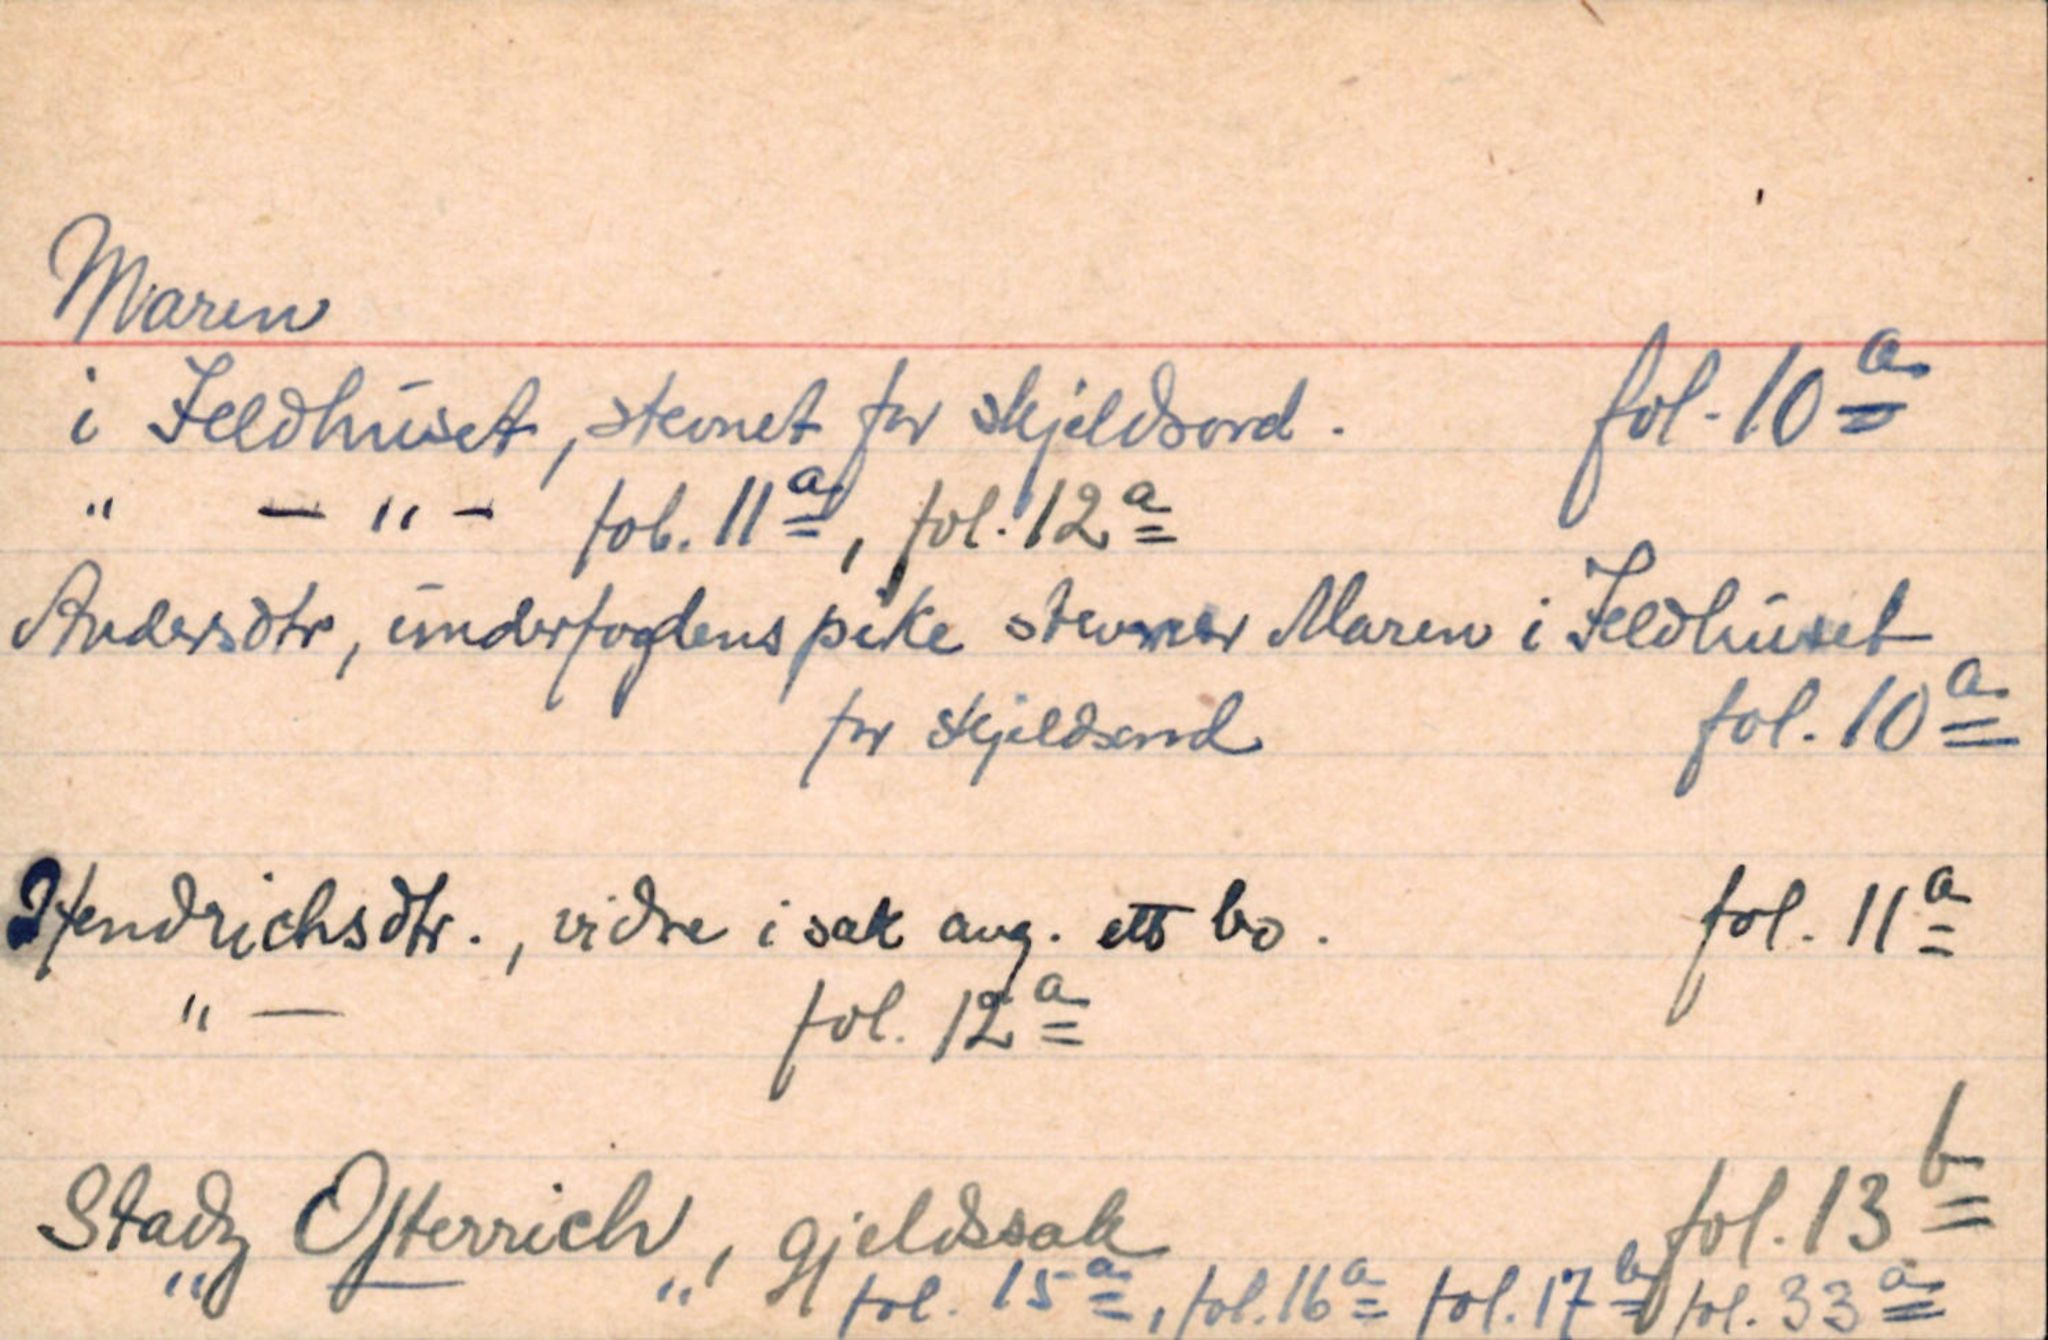 Maren
i Feldhuset, stevnet for skjeldsord. fol. 10 a
" — " — fol. 11 a, fol. 12 a
Andersdtr, underfogdens pike stevner Maren i Feldhuset
for skjeldsord fol. 10 a
Hendrichsdtr., vidne i sak ang. ett bo. fol. 11 a
" — fol. 12 a
Stadz Osterrich, gjeldssak fol. 13 b
" " fol. 15 a, fol. 16 a fol. 17 b fol. 33 a